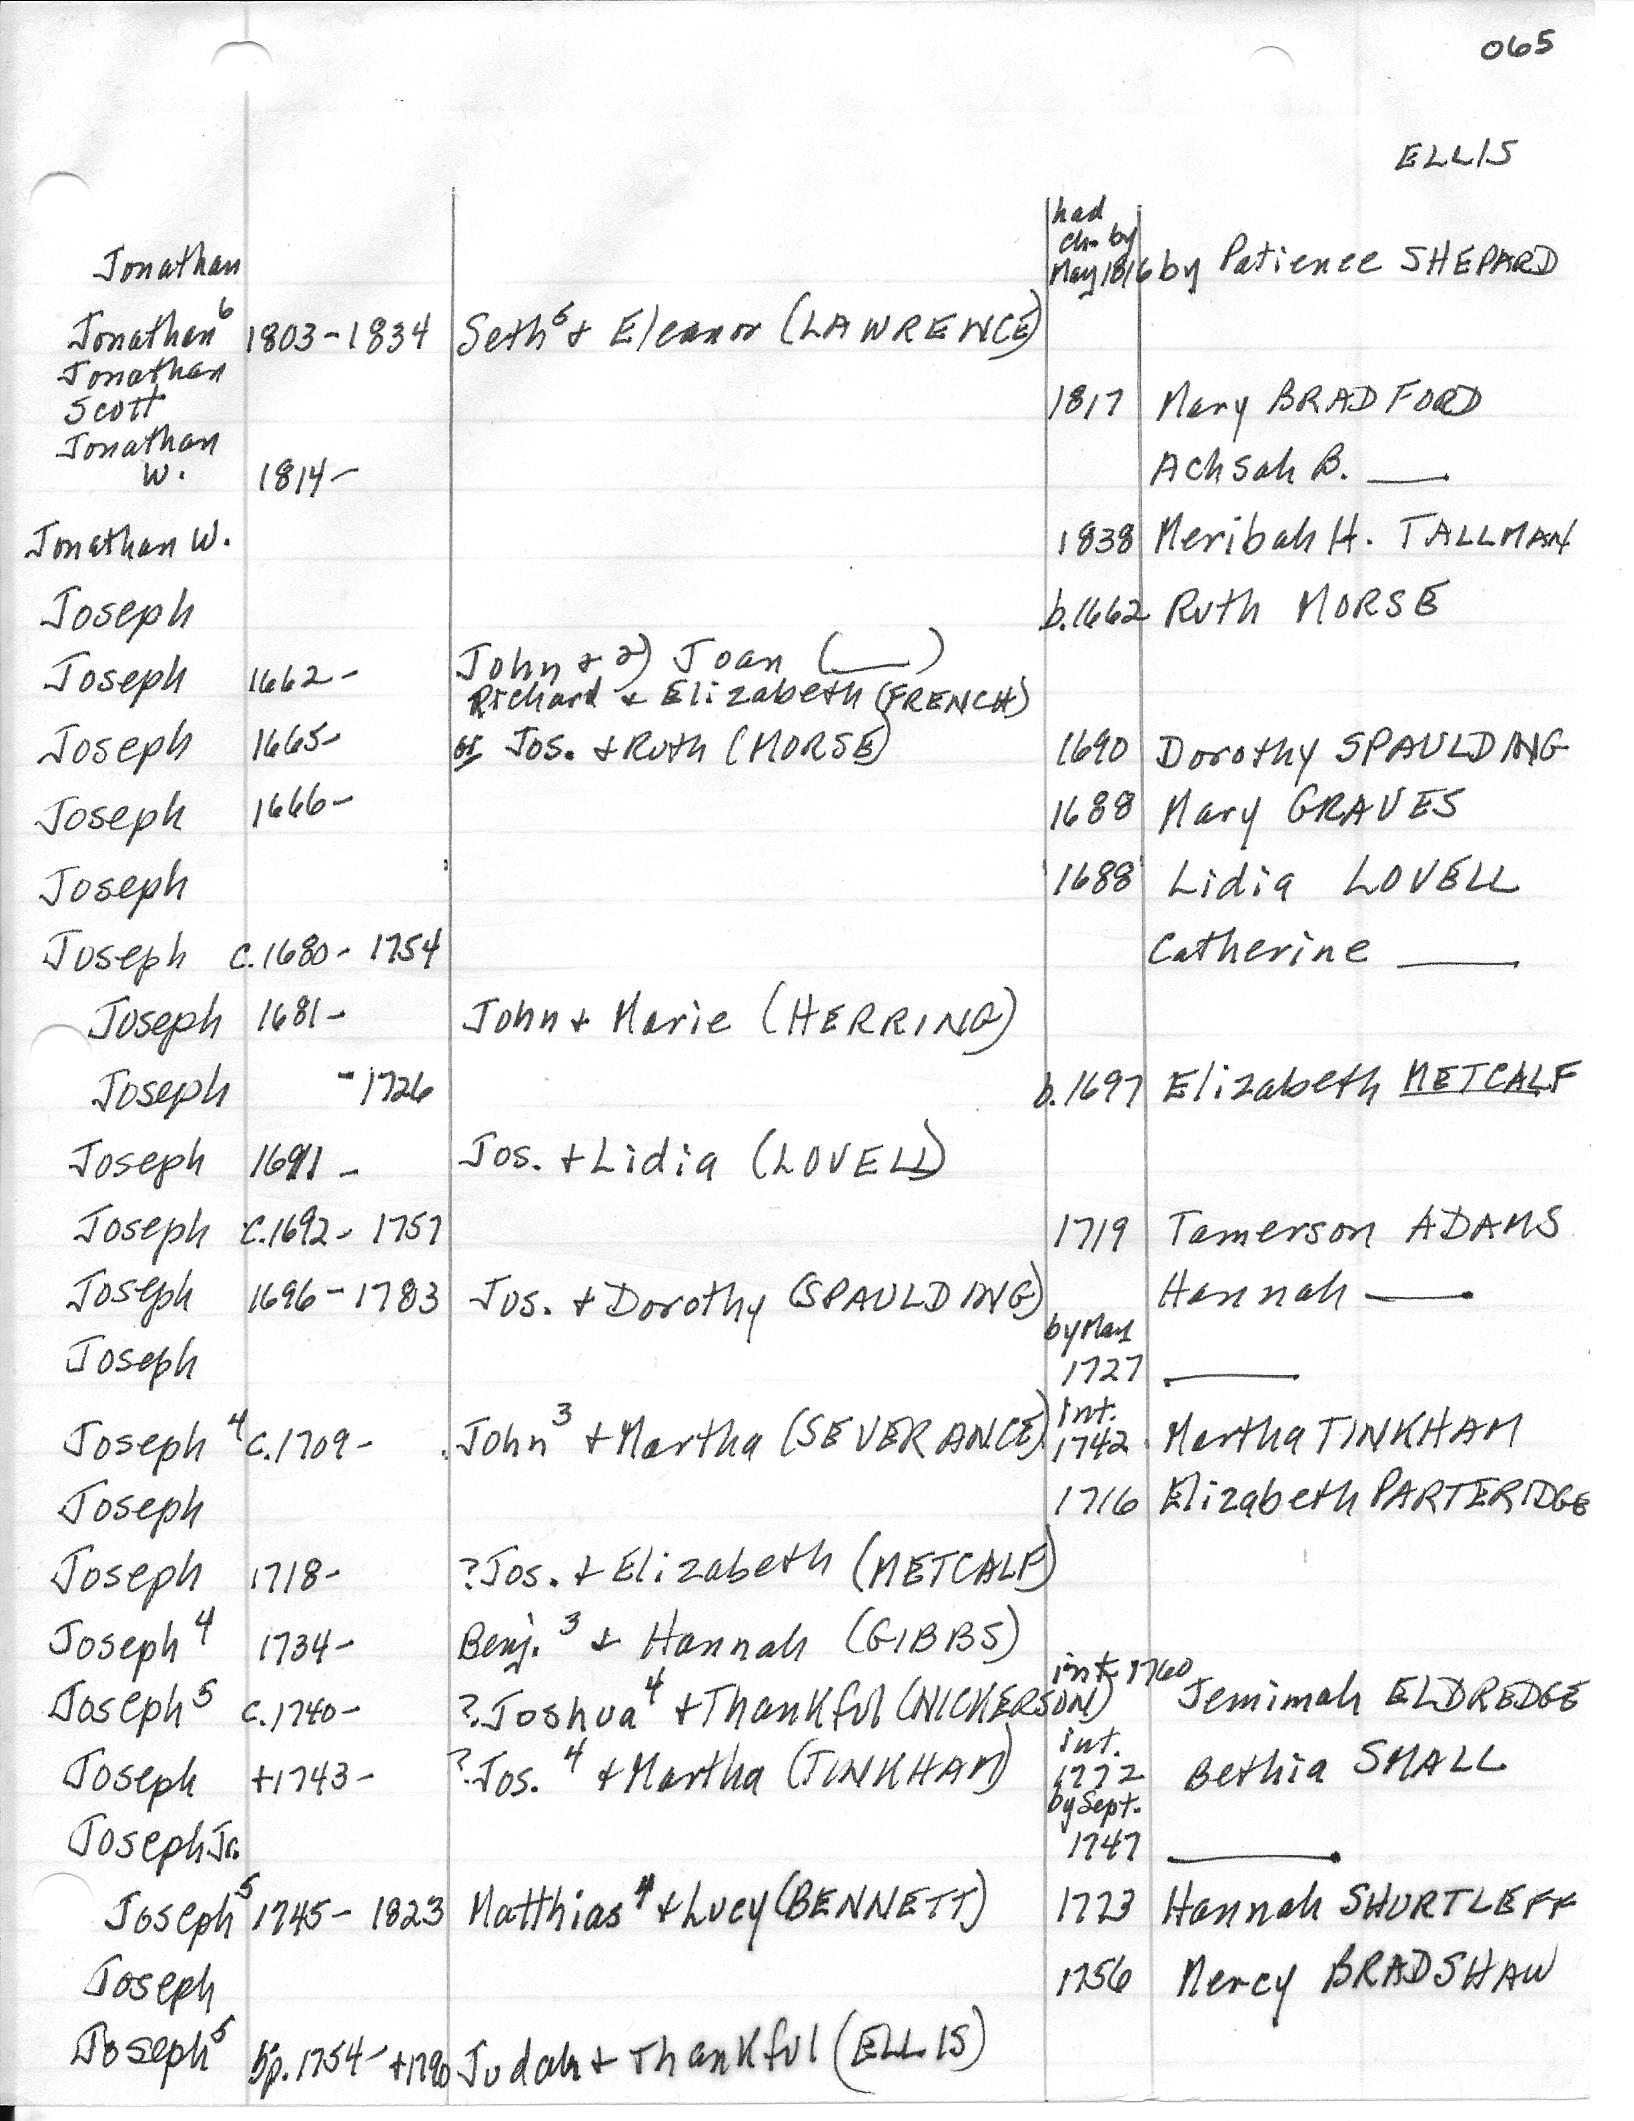 065
ELLIS
Jonathan had ch. by May 1816 by Patience SHEPARD
Jonathan⁶ 1803-1834 Seth⁵ + Eleanor (LAWRENCE)
Jonathan Scott 1817 Mary BRADFORD
Jonathan W. 1814- Achsah B. ___
Jonathan W. 1838 Meribah H. TALLMAN
Joseph b.1662 Ruth MORSE
Joseph 1662- John + 2) Joan (___)
Richard + Elizabeth (FRENCH)
Joseph 1665- or Jos. + Ruth (MORSE) 1690 Dorothy SPAULDING
Joseph 1666- 1688 Mary GRAVES
Joseph 1688 Lidia LOVELL
Joseph c.1680-1754 Catherine ___
Joseph 1681- John + Marie (HERRING)
Joseph -1726 b.1697 Elizabeth METCALF
Joseph 1691- Jos. + Lidia (LOVELL)
Joseph c.1692-1757 1719 Tamerson ADAMS
Joseph 1696-1783 Jos. + Dorothy (SPAULDING) Hannah ___
Joseph by May 1727 ___
Joseph⁴ c.1709- John³ + Martha (SEVERANCE) int. 1742 Martha TINKHAM
Joseph 1716 Elizabeth PARTERIDGE
Joseph 1718- ?Jos. + Elizabeth (METCALF)
Joseph⁴ 1734- Benj.³ + Hannah (GIBBS)
Joseph⁵ c.1740- ?Joshua⁴ + Thankful (NICKERSON) int. 1760 Jemimah ELDREDGE
Joseph +1743- ?Jos.⁴ + Martha (TINKHAM) int. 1772 Bethia SMALL
Joseph Jr. by Sept. 1747 ___
Joseph⁵ 1745-1823 Matthias⁴ + Lucy (BENNETT) 1773 Hannah SHURTLEFF
Joseph 1756 Mercy BRADSHAW
Joseph⁵ bp.1754-+1790 Judah + Thankful (ELLIS)